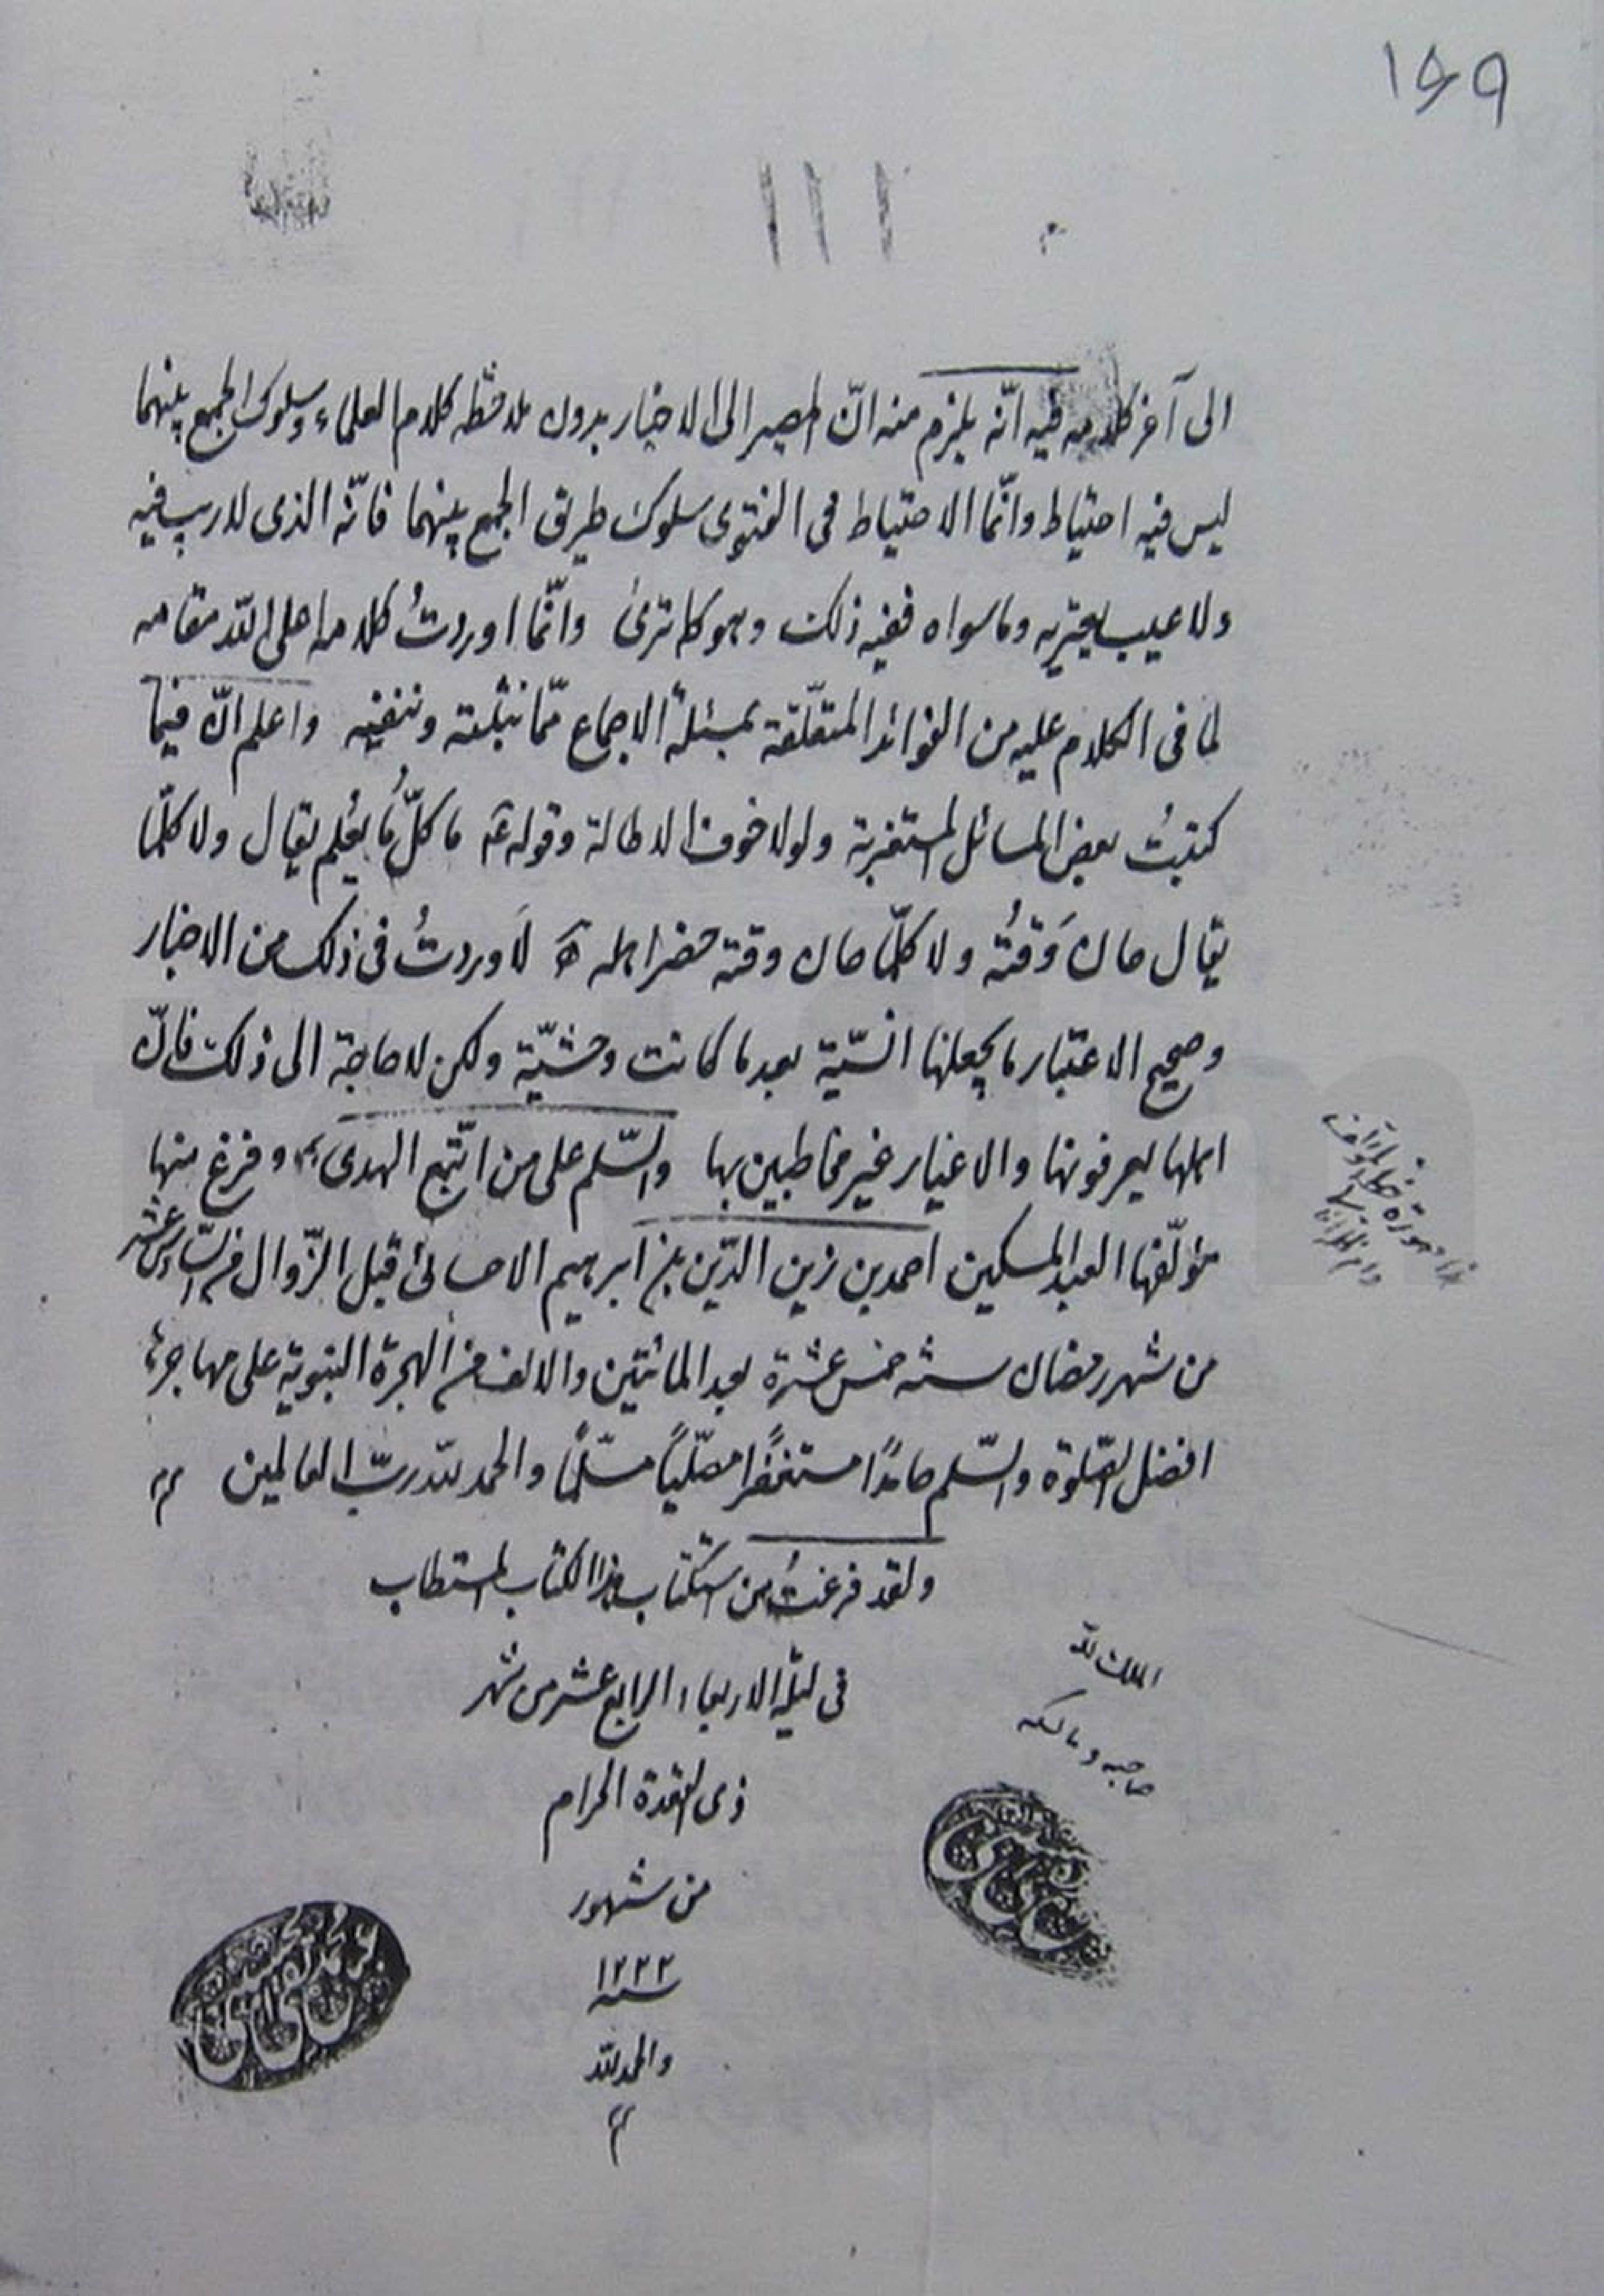 ۱۶۹
الى آخر كلامه فيه انّه يلزم منه انّ المصير الى الاخبار بدون ملاحظة كلام العلماء وسلوك الجمع بينهما
ليس فيه احتياط وانّما الاحتياط فى الفتوى سلوك طريق الجمع بينهما فانّه الذى لا ريب فيه
ولا عيب يعتريه وما سواه ففيه ذلك وهو كما ترىٰ وانّما اوردتُ كلامه اعلى اللّه مقامه
لما فى الكلام عليه من الفوائد المتعلّقة بمسئلة الاجماع ممّا نثبته وننفيه واعلم انّ فيما
كتبتُ بعض المسائل المستغربة ولولا خوف الاطالة وقوله ع ما كلّ ما يُعلم يقال ولا كلّما
يقال حان وَقتُه ولا كلّ ما حان وقته حضر اهله لَاَوردتُ فى ذلك من الاخبار
وصحيح الاعتبار ما يجعلها انسّيّة بعد ما كانت وحشيّة ولكن لا حاجة الى ذلك فانّ
اهلها يعرفونها والاغيار غير مخاطبين بها والسّلم على من اتّبع الهدى وفرغ منها
مؤلّفها العبد المسكين احمد بن زين الدّين بن ابرهيم الاحسائى قبل الزّوال من السّادس عشر
من شهر رمضان سنه خمس عشرة بعد المائتين والالف من الهجرة النبويّة على مهاجرها
افضل الصّلوة والسّلم حامدًا مستغفرًا مصلّيًا مسلّمًا والحمد للّه ربّ العالمين
ولقد فرغتُ من استكتاب هذا الكتاب المستطاب
فى ليلة الاربعاء الرابع عشر من شهر
ذى القعدة الحرام
من شهور
سنه ۱۲۳۲
والحمد للّه
الملك للّه
صاحبه ومالكه